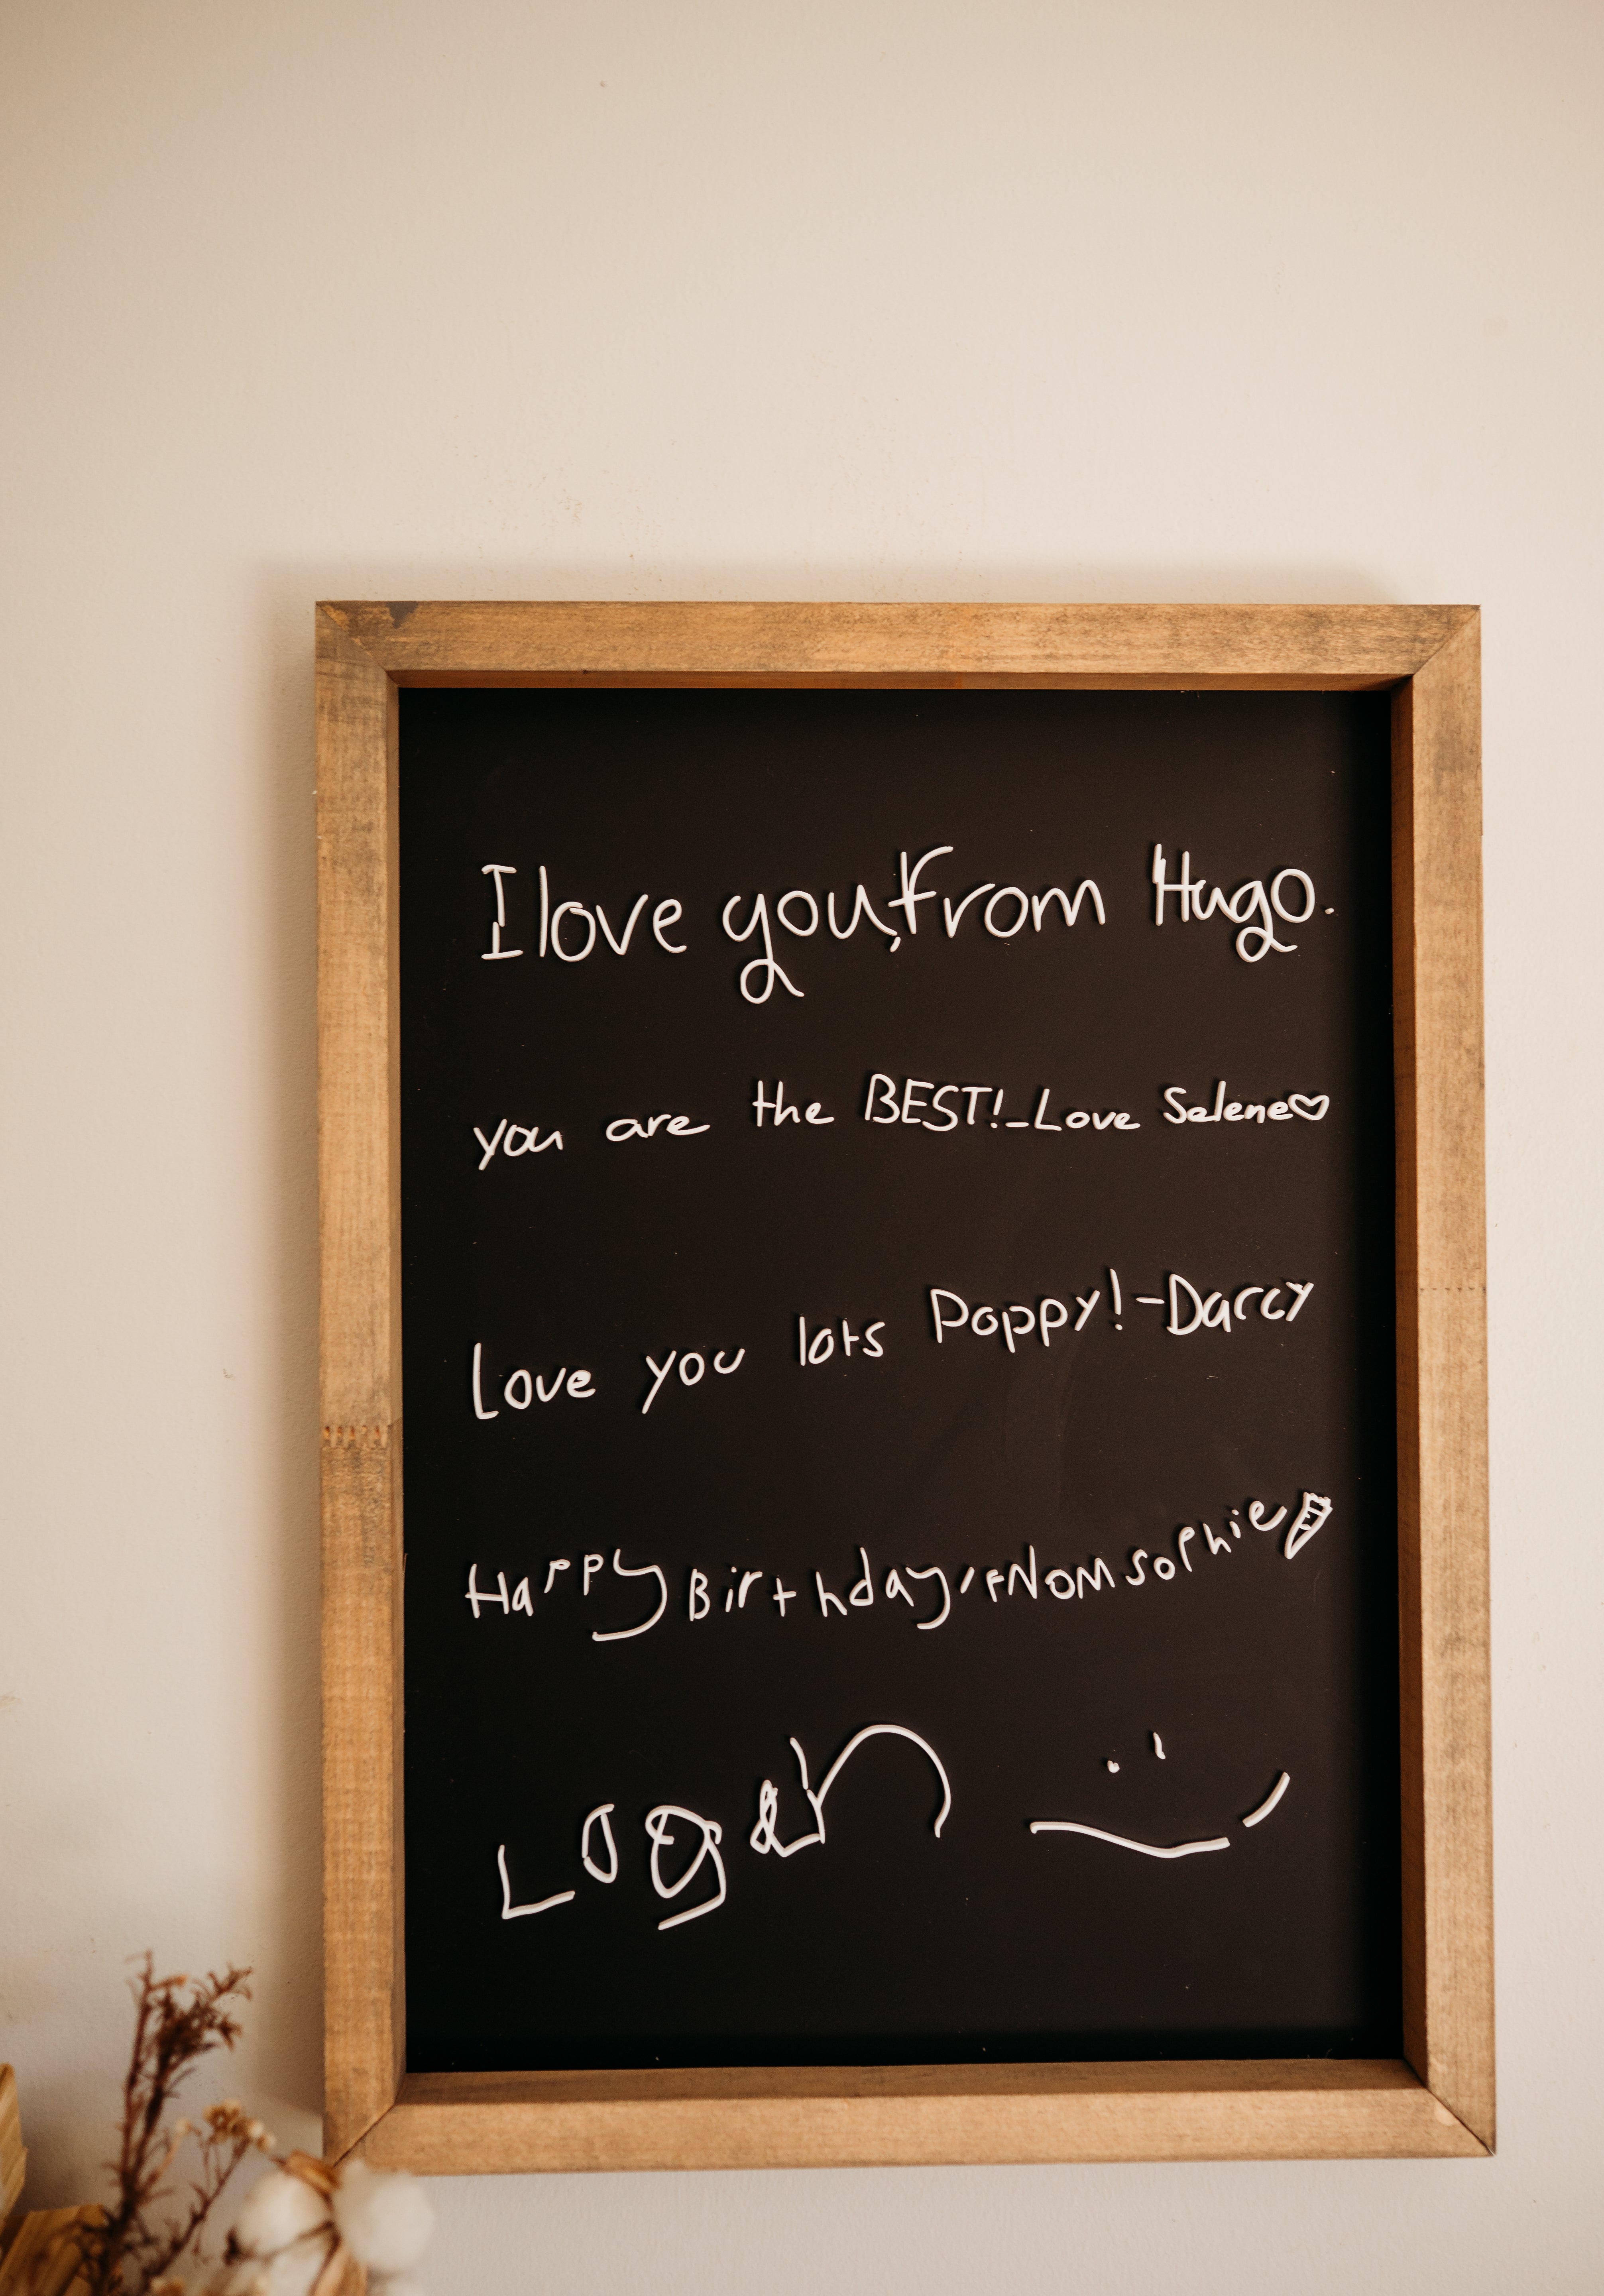 I love you, from Hugo.
you are the BEST! - Love Selene♡
Love you lots Poppy! - Darcy
Happy Birthday, from sophie
Logan